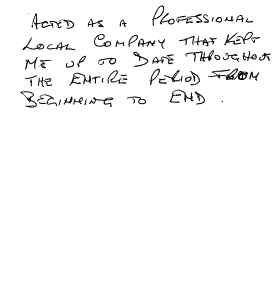 ACTED AS A PROFESSIONAL
LOCAL COMPANY THAT KEPT
ME UP TO DATE THROUGHOUT
THE ENTIRE PERIOD FROM
BEGINNING TO END.